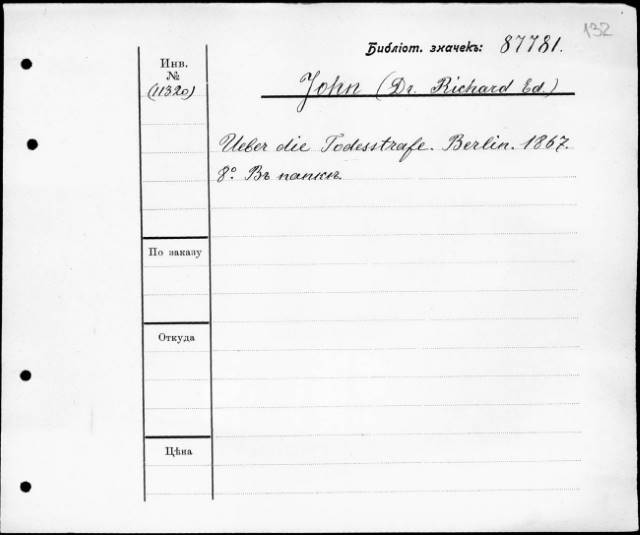 132
Библіот. значекъ: 87781.
Инв.
№
(11320)
John (Dr. Richard Ed.)
Ueber die Todesstrafe. Berlin. 1867.
8º. Въ папкѣ.
По заказу
Откуда
Цѣна